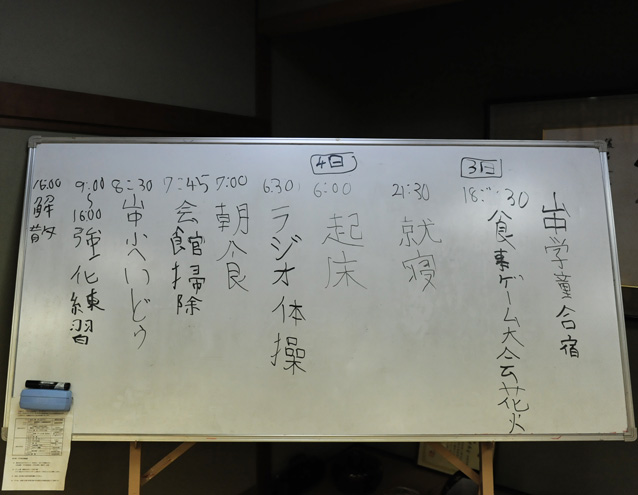 山中学童合宿
3日
18:30
食事ゲーム大会花火
21:30
就寝
4日
6:00
起床
6:30
ラジオ体操
7:00
朝食
7:45
会館掃除
8:30
山中小へいどう
9:00
〜
16:00
強化練習
16:00
解散